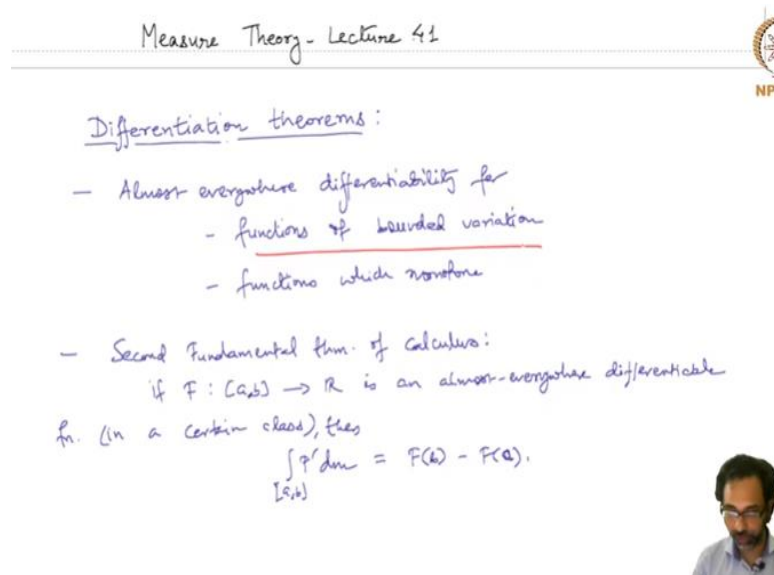 Measure Theory - Lecture 41
NP
Differentiation theorems:
— Almost everywhere differentiability for
- functions of bounded variation
- functions which monotone
— Second Fundamental thm. of calculus:
if F : [a,b] → ℝ is an almost-everywhere differentiable
fn. (in a certain class), then
∫ F' dm = F(b) - F(a).
[a,b]